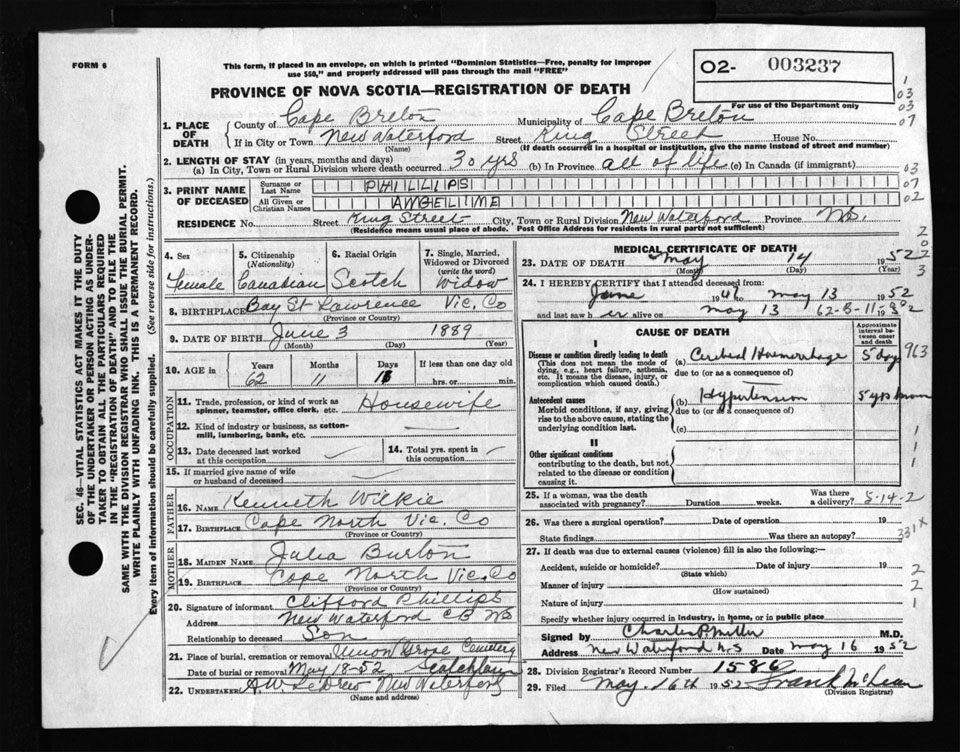 FORM 6
This form, if placed in an envelope, on which is printed "Dominion Statistics—Free, penalty for improper
use $50," and properly addressed will pass through the mail "FREE"
PROVINCE OF NOVA SCOTIA—REGISTRATION OF DEATH
02- 003237
For use of the Department only
1. PLACE OF DEATH
County of Cape Breton Municipality of Cape Breton
If in City or Town New Waterford Street King Street House No.
(Name) (If death occurred in a hospital or institution, give the name instead of street and number)
2. LENGTH OF STAY (in years, months and days)
(a) In City, Town or Rural Division where death occurred 30 yrs (b) In Province all of life (c) In Canada (if immigrant)
3. PRINT NAME OF DECEASED
Surname or Last Name PHILLIPS
All Given or Christian Names ANGELINE
RESIDENCE No. Street King Street City, Town or Rural Division New Waterford Province NS.
(Residence means usual place of abode. Post Office Address for residents in rural parts not sufficient)
4. Sex Female
5. Citizenship (Nationality) Canadian
6. Racial Origin Scotch
7. Single, Married, Widowed or Divorced (write the word) Widow
8. BIRTHPLACE Bay St Lawrence Vic. Co
(Province or Country)
9. DATE OF BIRTH June 3 1889
(Month) (Day) (Year)
10. AGE in Years Months Days If less than one day old
62 11 11 hrs. or min.
OCCUPATION
11. Trade, profession, or kind of work as spinner, teamster, office clerk, etc. Housewife
12. Kind of industry or business, as cotton-mill, lumbering, bank, etc.
13. Date deceased last worked at this occupation
14. Total yrs. spent in this occupation
15. If married give name of wife or husband of deceased
FATHER
16. Name Kenneth Wilkie
17. Birthplace Cape North Vic. Co
(Province or Country)
MOTHER
18. Maiden Name Julia Burton
19. Birthplace Cape North Vic. Co
(Province or Country)
20. Signature of informant Clifford Phillips
Address New Waterford CB NS
Relationship to deceased Son
21. Place of burial, cremation or removal Union Grove Cemetery
Date of burial or removal May 18-52
22. UNDERTAKER New Waterford
(Name and address)
MEDICAL CERTIFICATE OF DEATH
23. DATE OF DEATH May 14 1952
(Month) (Day) (Year)
24. I HEREBY CERTIFY that I attended deceased from
June 1947 to May 13 1952
and last saw h er alive on May 13 62-8-11- 1952
CAUSE OF DEATH
Approximate interval between onset and death
I
Disease or condition directly leading to death
(This does not mean the mode of dying, e.g., heart failure, asthenia, etc. It means the disease, injury, or complication which caused death.)
(a) Cerebral Haemorrhage 5 days
due to (or as a consequence of)
Antecedent causes
Morbid conditions, if any, giving rise to the above cause, stating the underlying condition last.
(b) Hypertension 5 yrs known
due to (or as a consequence of)
(c)
II
Other significant conditions
contributing to the death, but not related to the disease or condition causing it.
25. If a woman, was the death associated with pregnancy? Duration weeks. Was there a delivery? 5-14-2
26. Was there a surgical operation? Date of operation 19
State findings Was there an autopsy? 331X
27. If death was due to external causes (violence) fill in also the following:—
Accident, suicide or homicide? Date of injury 19
(State which)
Manner of injury
(How sustained)
Nature of injury
Specify whether injury occurred in industry, in home, or in public place
Signed by Charles P Miller M.D.
Address New Waterford N.S Date May 16 1952
28. Division Registrar's Record Number 1586
29. Filed May. 16th 1952 Frank McLean
(Division Registrar)
SEC. 46—VITAL STATISTICS ACT MAKES IT THE DUTY
OF THE UNDERTAKER OR PERSON ACTING AS UNDER-
TAKER TO OBTAIN ALL THE PARTICULARS REQUIRED
IN THE "REGISTRATION OF DEATH" AND TO FILE THE
SAME WITH THE DIVISION REGISTRAR WHO SHALL ISSUE THE BURIAL PERMIT.
WRITE PLAINLY WITH UNFADING INK. THIS IS A PERMANENT RECORD.
Every item of information should be carefully supplied. (See reverse side for instructions.)
1
03
03
07
03
07
02
2
0
2
3
963
1
1
1
2
2
1